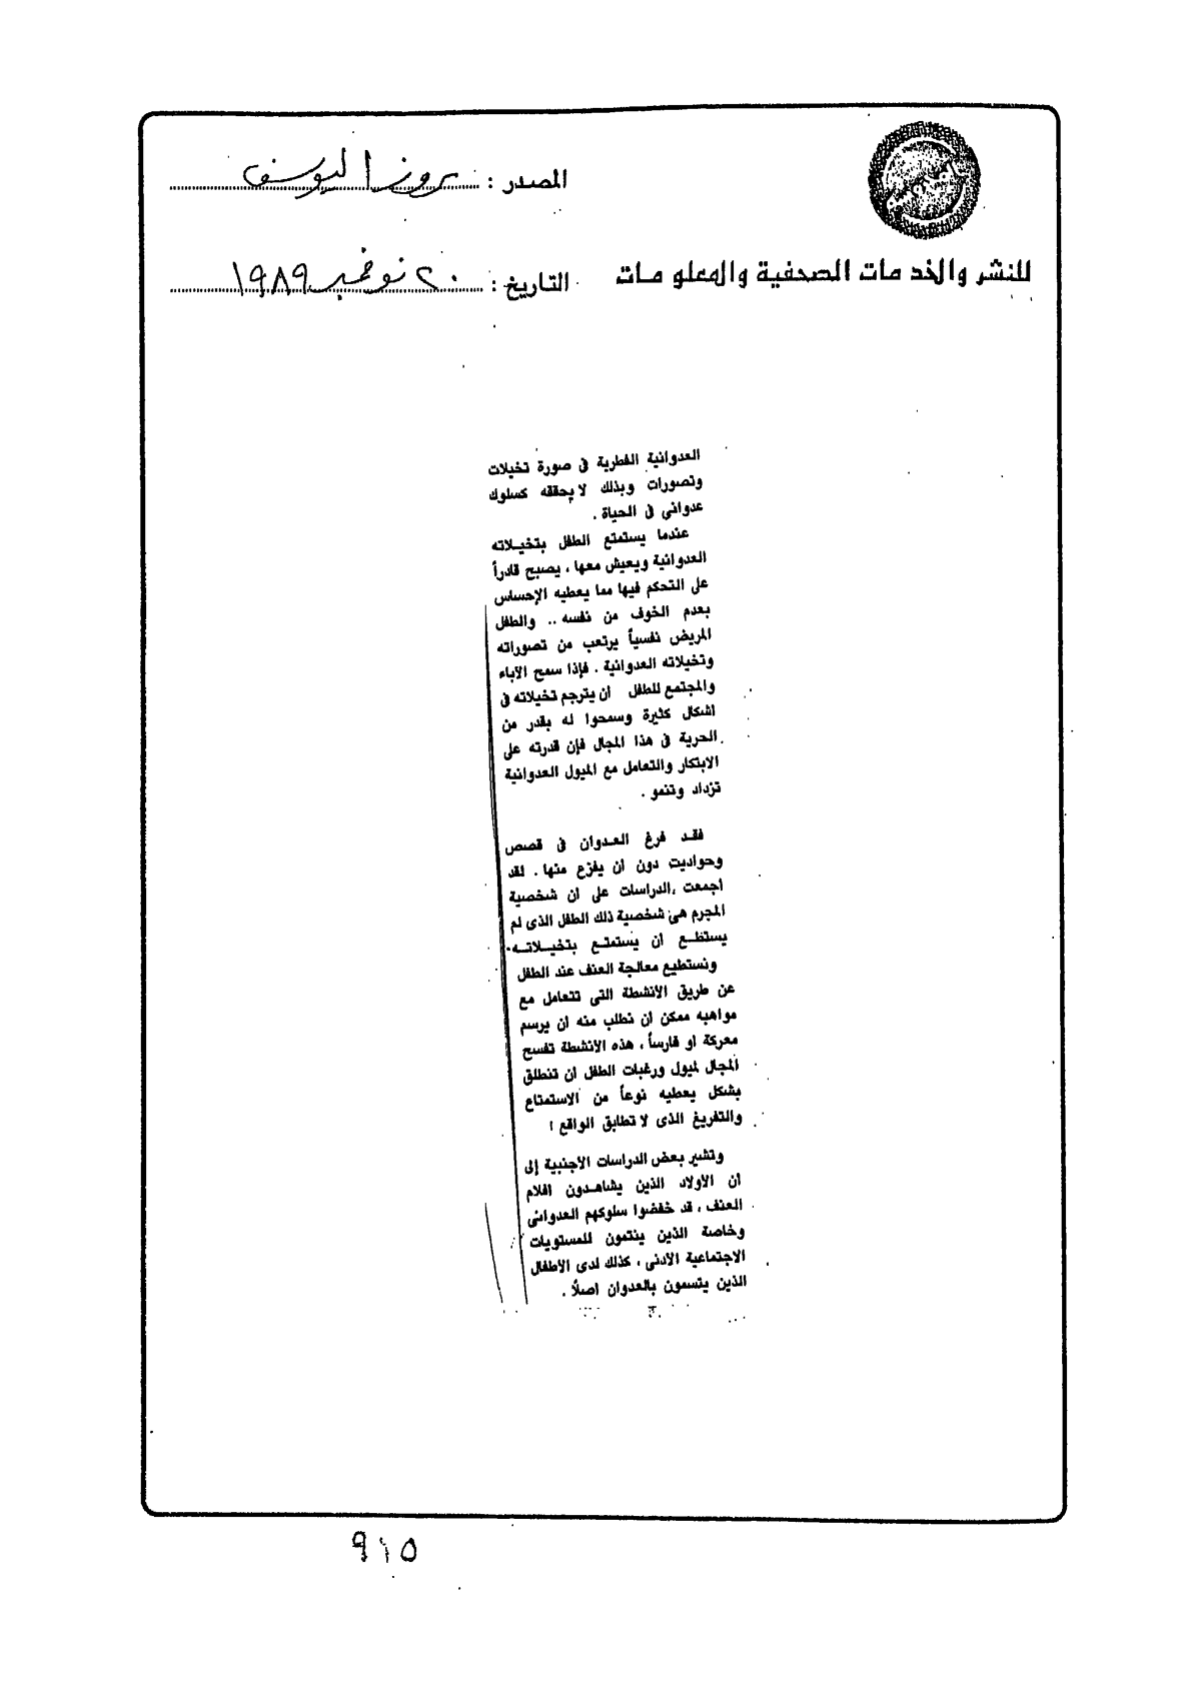 المصدر : روز اليوسف
للنشر والخدمات الصحفية والمعلومات
التاريخ : ٢٠ نوفمبر ١٩٨٩
العدوانية الفطرية فى صورة تخيلات
وتصورات وبذلك لا يحققه كسلوك
عدوانى فى الحياة .
عندما يستمتع الطفل بتخيلاته
العدوانية ويعيش معها ، يصبح قادراً
على التحكم فيها مما يعطيه الإحساس
بعدم الخوف من نفسه .. والطفل
المريض نفسياً يرتعب من تصوراته
وتخيلاته العدوانية . فإذا سمح الآباء
والمجتمع للطفل أن يترجم تخيلاته فى
اشكال كثيرة وسمحوا له بقدر من
الحرية فى هذا المجال فإن قدرته على
الابتكار والتعامل مع الميول العدوانية
تزداد وتنمو .
فقد فرغ العدوان فى قصص
وحواديت دون ان يفزع منها . لقد
أجمعت الدراسات على ان شخصية
المجرم هى شخصية ذلك الطفل الذى لم
يستطع ان يستمتع بتخيلاته .
ونستطيع معالجة العنف عند الطفل
عن طريق الأنشطة التى تتعامل مع
مواهبه ممكن ان نطلب منه ان يرسم
معركة او فارساً ، هذه الأنشطة تفسح
المجال لميول ورغبات الطفل ان تنطلق
بشكل يعطيه نوعاً من الاستمتاع
والتفريغ الذى لا تطابق الواقع !
وتشير بعض الدراسات الأجنبية إلى
أن الأولاد الذين يشاهدون افلام
العنف ، قد خفضوا سلوكهم العدوانى
وخاصة الذين ينتمون للمستويات
الاجتماعية الأدنى ، كذلك لدى الأطفال
الذين يتسمون بالعدوان اصلاً .
٩١٥